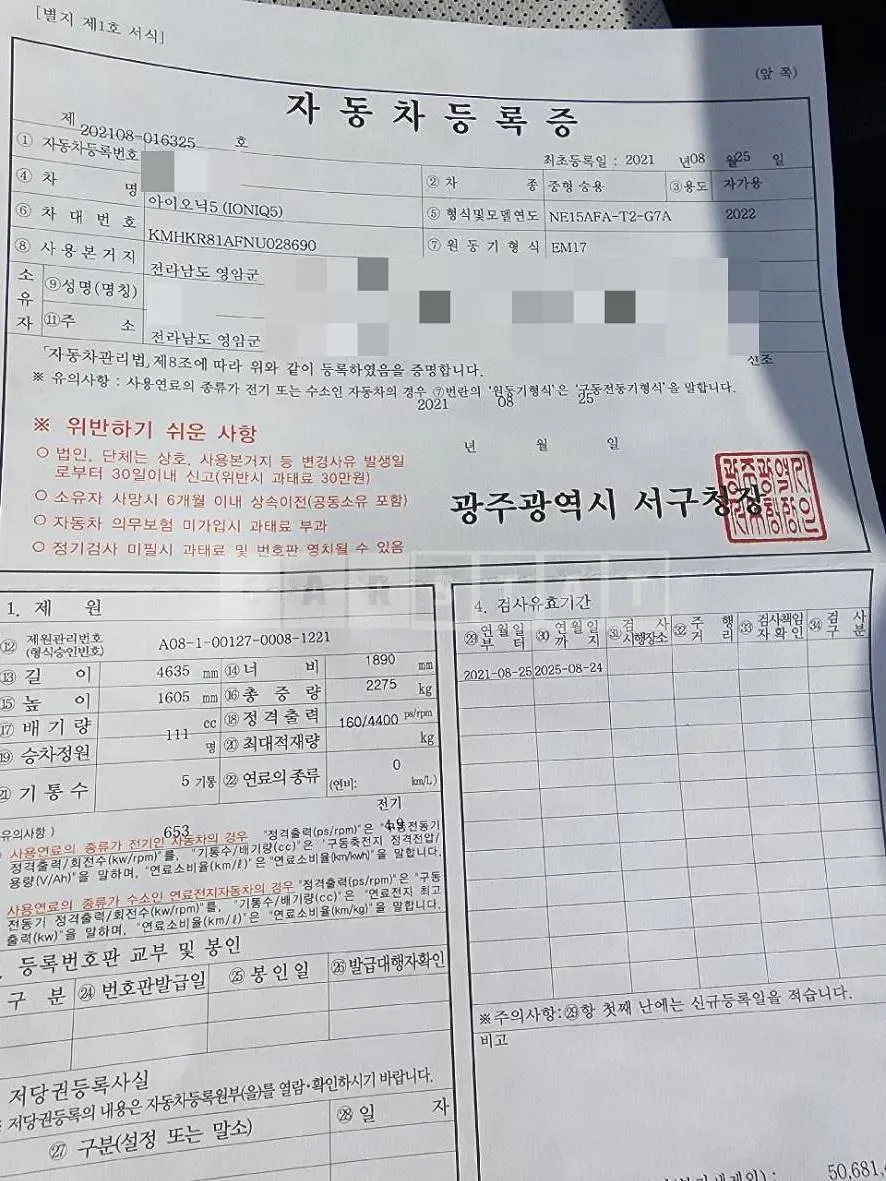 [별지 제1호 서식]
(앞 쪽)
자동차등록증
제 202108-016325 호
최초등록일 : 2021 년 08 월 25 일
① 자동차등록번호
② 차 종 중형 승용 ③용도 자가용
④ 차 명 아이오닉5 (IONIQ5)
⑤ 형식및모델연도 NE15AFA-T2-G7A 2022
⑥ 차대번호 KMHKR81AFNU028690
⑦ 원동기형식 EM17
⑧ 사용본거지 전라남도 영암군
소유자
⑨성명(명칭)
⑪주 소 전라남도 영암군
신조
「자동차관리법」 제8조에 따라 위와 같이 등록하였음을 증명합니다.
※ 유의사항 : 사용연료의 종류가 전기 또는 수소인 자동차의 경우 ⑦번란의 '원동기형식'은 '구동전동기형식'을 말합니다.
2021 08 25
년 월 일
※ 위반하기 쉬운 사항
○ 법인, 단체는 상호, 사용본거지 등 변경사유 발생일
로부터 30일이내 신고(위반시 과태료 30만원)
○ 소유자 사망시 6개월 이내 상속이전(공동소유 포함)
○ 자동차 의무보험 미가입시 과태료 부과
○ 정기검사 미필시 과태료 및 번호판 영치될 수 있음
광주광역시 서구청장
CARSTAY
1. 제 원
⑫ 제원관리번호 (형식승인번호) A08-1-00127-0008-1221
⑬ 길 이 4635 mm ⑭ 너 비 1890 mm
⑮ 높 이 1605 mm ⑯ 총 중 량 2275 kg
⑰ 배 기 량 cc ⑱ 정격출력 160/4400 ps/rpm
111
⑲ 승차정원 명 ⑳ 최대적재량 kg
㉑ 기 통 수 5 기통 ㉒ 연료의 종류 0
(연비: km/L)
전기
653 4.9
유의사항 )
사용연료의 종류가 전기인 자동차의 경우 "정격출력(ps/rpm)"은 "구동전동기
정격출력/회전수(kw/rpm)"를, "기통수/배기량(cc)"은 "구동축전지 정격전압/
용량(V/Ah)"을 말하며, "연료소비율(km/ℓ)"은 "연료소비율(km/kwh)"을 말합니다.
사용연료의 종류가 수소인 연료전지자동차의 경우 "정격출력(ps/rpm)"은 "구동
전동기 정격출력/회전수(kw/rpm)"를, "기통수/배기량(cc)"은 "연료전지 최고
출력(kw)"을 말하며, "연료소비율(km/ℓ)"은 "연료소비율(km/kg)"을 말합니다.
등록번호판 교부 및 봉인
구 분 ㉔ 번호판발급일 ㉕ 봉 인 일 ㉖ 발급대행자확인
저당권등록사실
※ 저당권등록의 내용은 자동차등록원부(을)를 열람·확인하시기 바랍니다.
㉗ 구분(설정 또는 말소) ㉘ 일 자
4. 검사유효기간
㉙ 연월일부터 ㉚ 연월일까지 ㉛ 검사시행장소 ㉜ 주행거리 ㉝ 검사책임자확인 ㉞ 검사구분
2021-08-25 2025-08-24
※주의사항:㉙항 첫째 난에는 신규등록일을 적습니다.
비고
50,681,